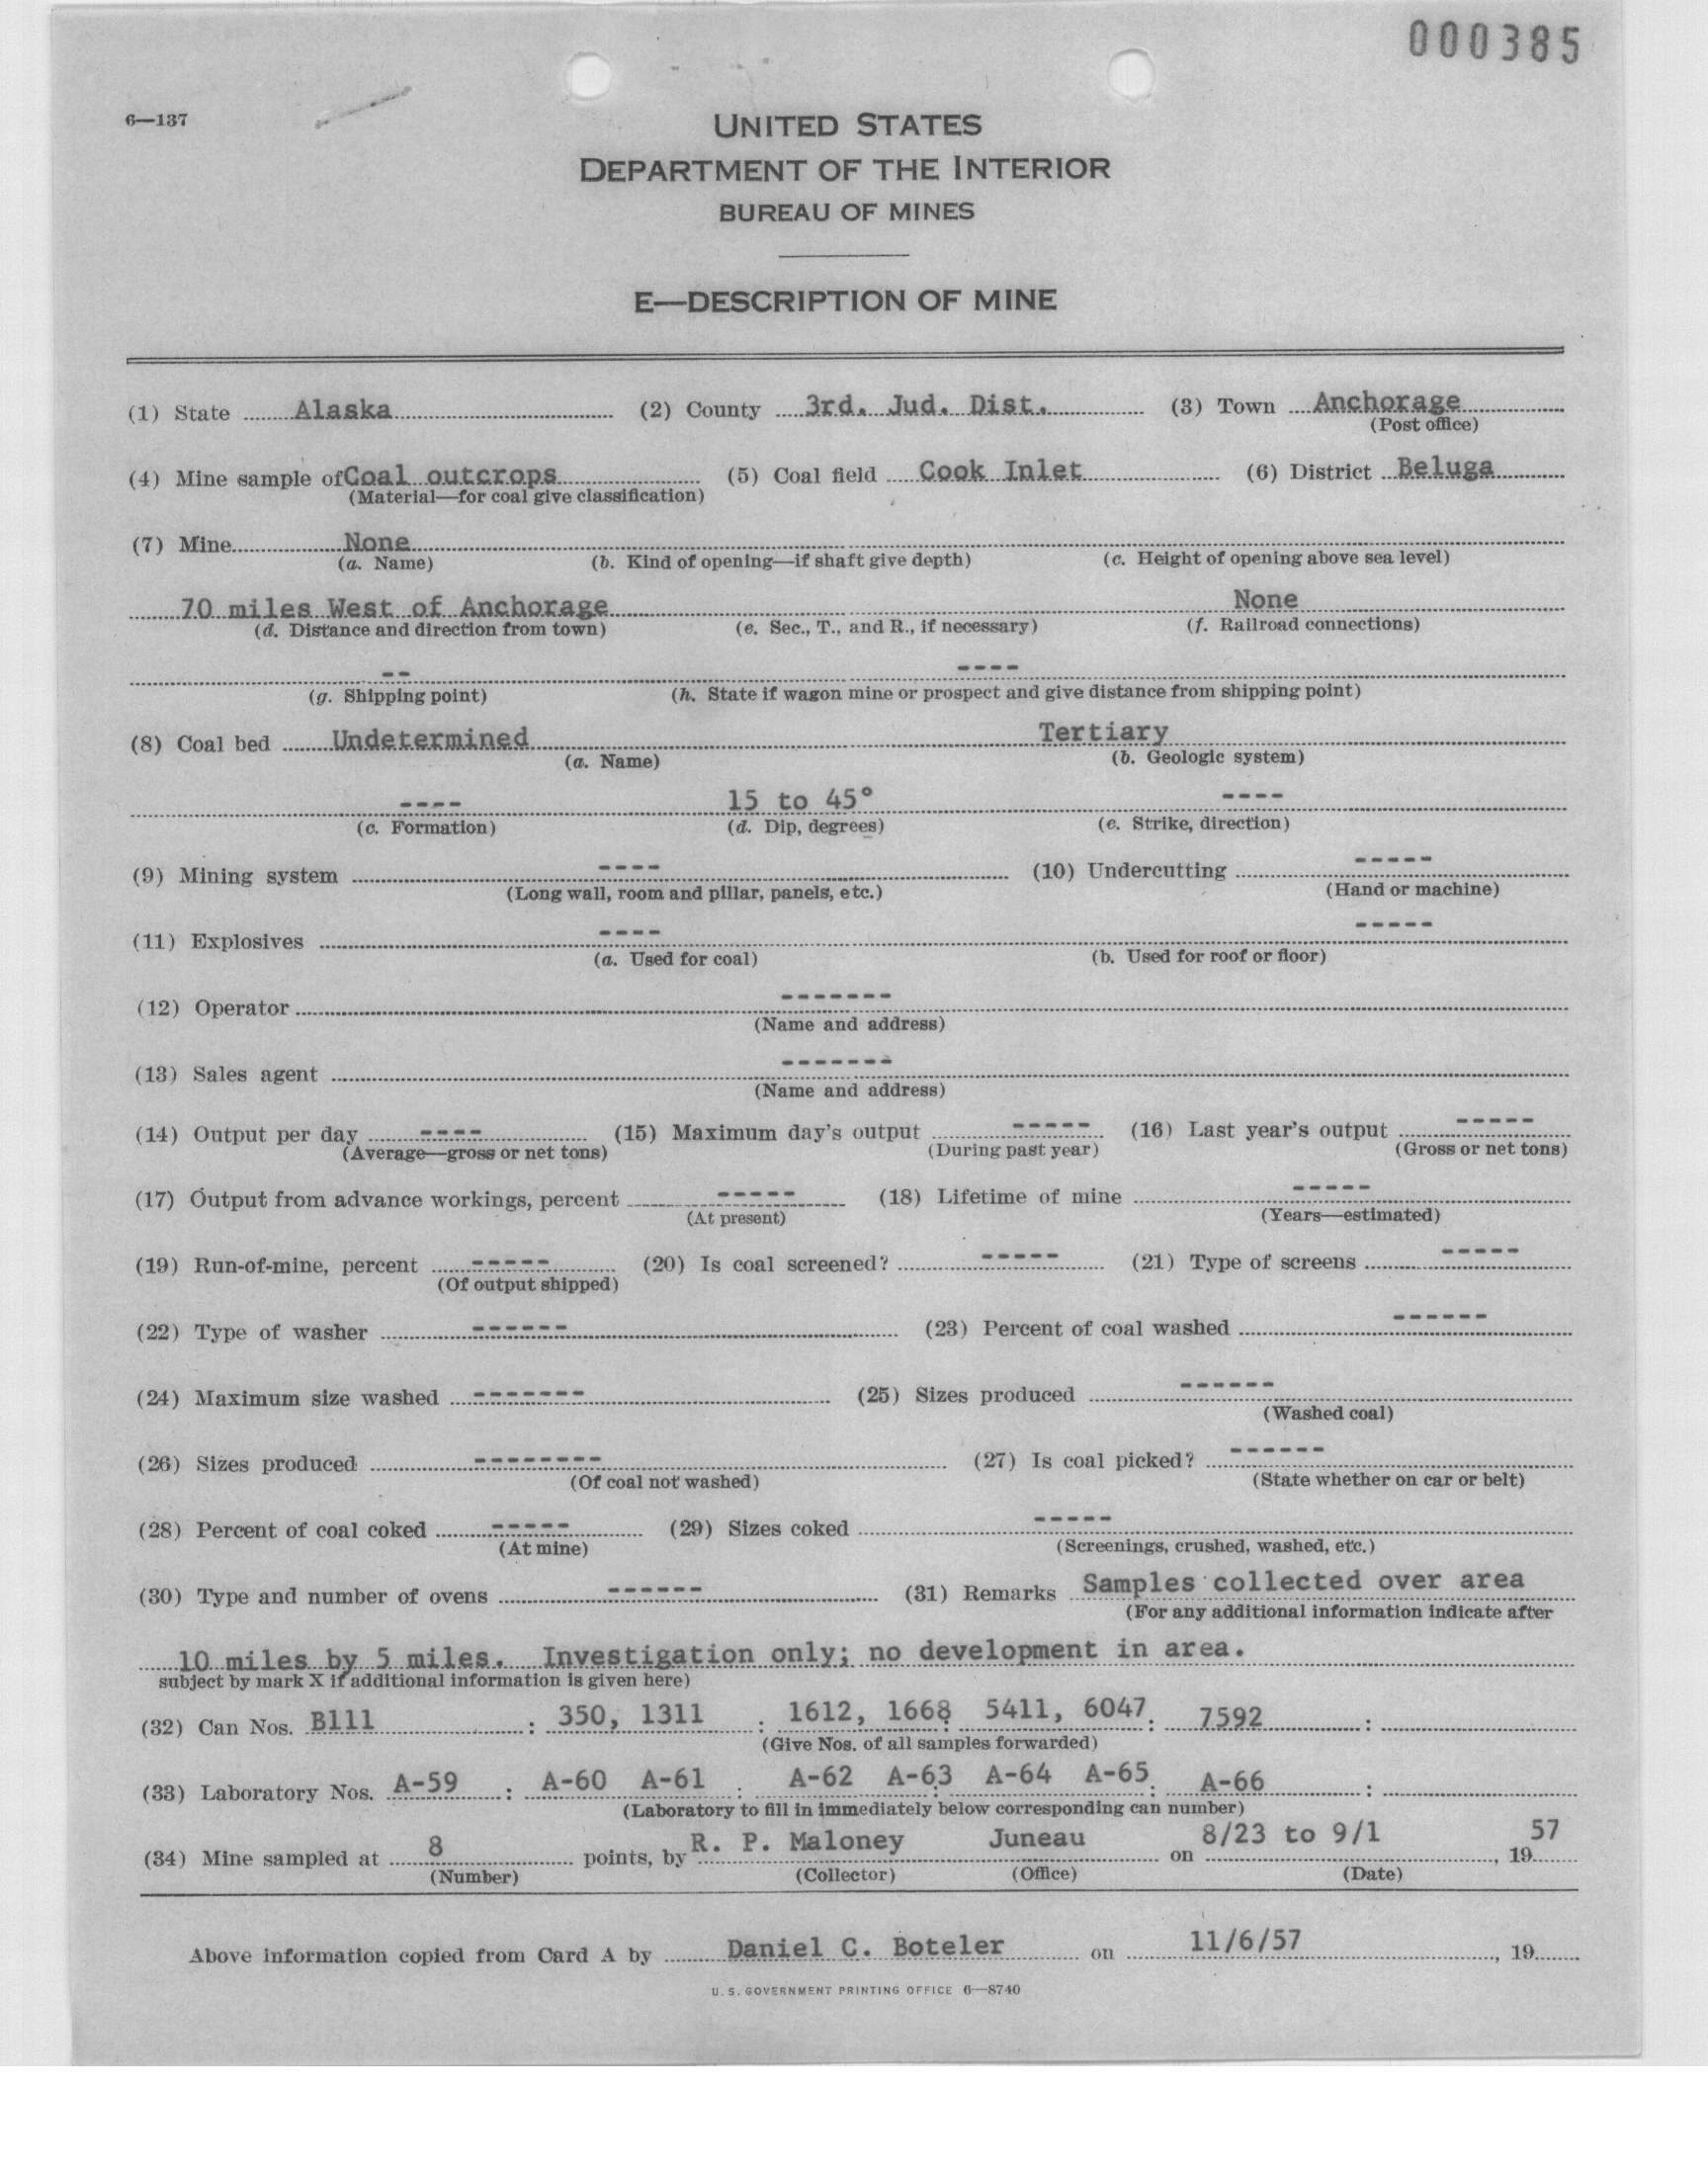 000385
6—137
UNITED STATES
DEPARTMENT OF THE INTERIOR
BUREAU OF MINES
E—DESCRIPTION OF MINE
(1) State Alaska (2) County 3rd. Jud. Dist. (3) Town Anchorage
(Post office)
(4) Mine sample of Coal outcrops (5) Coal field Cook Inlet (6) District Beluga
(Material—for coal give classification)
(7) Mine None
(a. Name) (b. Kind of opening—if shaft give depth) (c. Height of opening above sea level)
70 miles West of Anchorage None
(d. Distance and direction from town) (e. Sec., T., and R., if necessary) (f. Railroad connections)
-- ----
(g. Shipping point) (h. State if wagon mine or prospect and give distance from shipping point)
(8) Coal bed Undetermined Tertiary
(a. Name) (b. Geologic system)
---- 15 to 45° ----
(c. Formation) (d. Dip, degrees) (e. Strike, direction)
(9) Mining system ---- (10) Undercutting -----
(Long wall, room and pillar, panels, etc.) (Hand or machine)
(11) Explosives ---- -----
(a. Used for coal) (b. Used for roof or floor)
(12) Operator -------
(Name and address)
(13) Sales agent -------
(Name and address)
(14) Output per day ---- (15) Maximum day's output ----- (16) Last year's output -----
(Average—gross or net tons) (During past year) (Gross or net tons)
(17) Output from advance workings, percent ----- (18) Lifetime of mine -----
(At present) (Years—estimated)
(19) Run-of-mine, percent ----- (20) Is coal screened? ----- (21) Type of screens -----
(Of output shipped)
(22) Type of washer ------ (23) Percent of coal washed ------
(24) Maximum size washed ------- (25) Sizes produced ------
(Washed coal)
(26) Sizes produced -------- (27) Is coal picked? ------
(Of coal not washed) (State whether on car or belt)
(28) Percent of coal coked ----- (29) Sizes coked -----
(At mine) (Screenings, crushed, washed, etc.)
(30) Type and number of ovens ------ (31) Remarks Samples collected over area
(For any additional information indicate after
10 miles by 5 miles. Investigation only; no development in area.
subject by mark X if additional information is given here)
(32) Can Nos. B111 : 350, 1311 : 1612, 1668 : 5411, 6047 : 7592 :
(Give Nos. of all samples forwarded)
(33) Laboratory Nos. A-59 : A-60 A-61 : A-62 A-63 : A-64 A-65 : A-66 :
(Laboratory to fill in immediately below corresponding can number)
(34) Mine sampled at 8 points, by R. P. Maloney Juneau on 8/23 to 9/1, 1957
(Number) (Collector) (Office) (Date)
Above information copied from Card A by Daniel C. Boteler on 11/6/57, 19
U. S. GOVERNMENT PRINTING OFFICE 6—8740